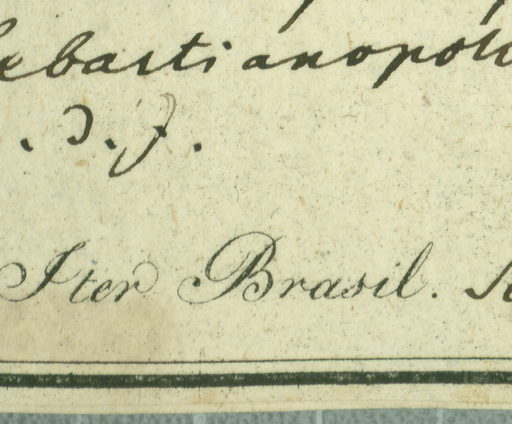 Sebastianopol
. D. f.
Iter Brasil.